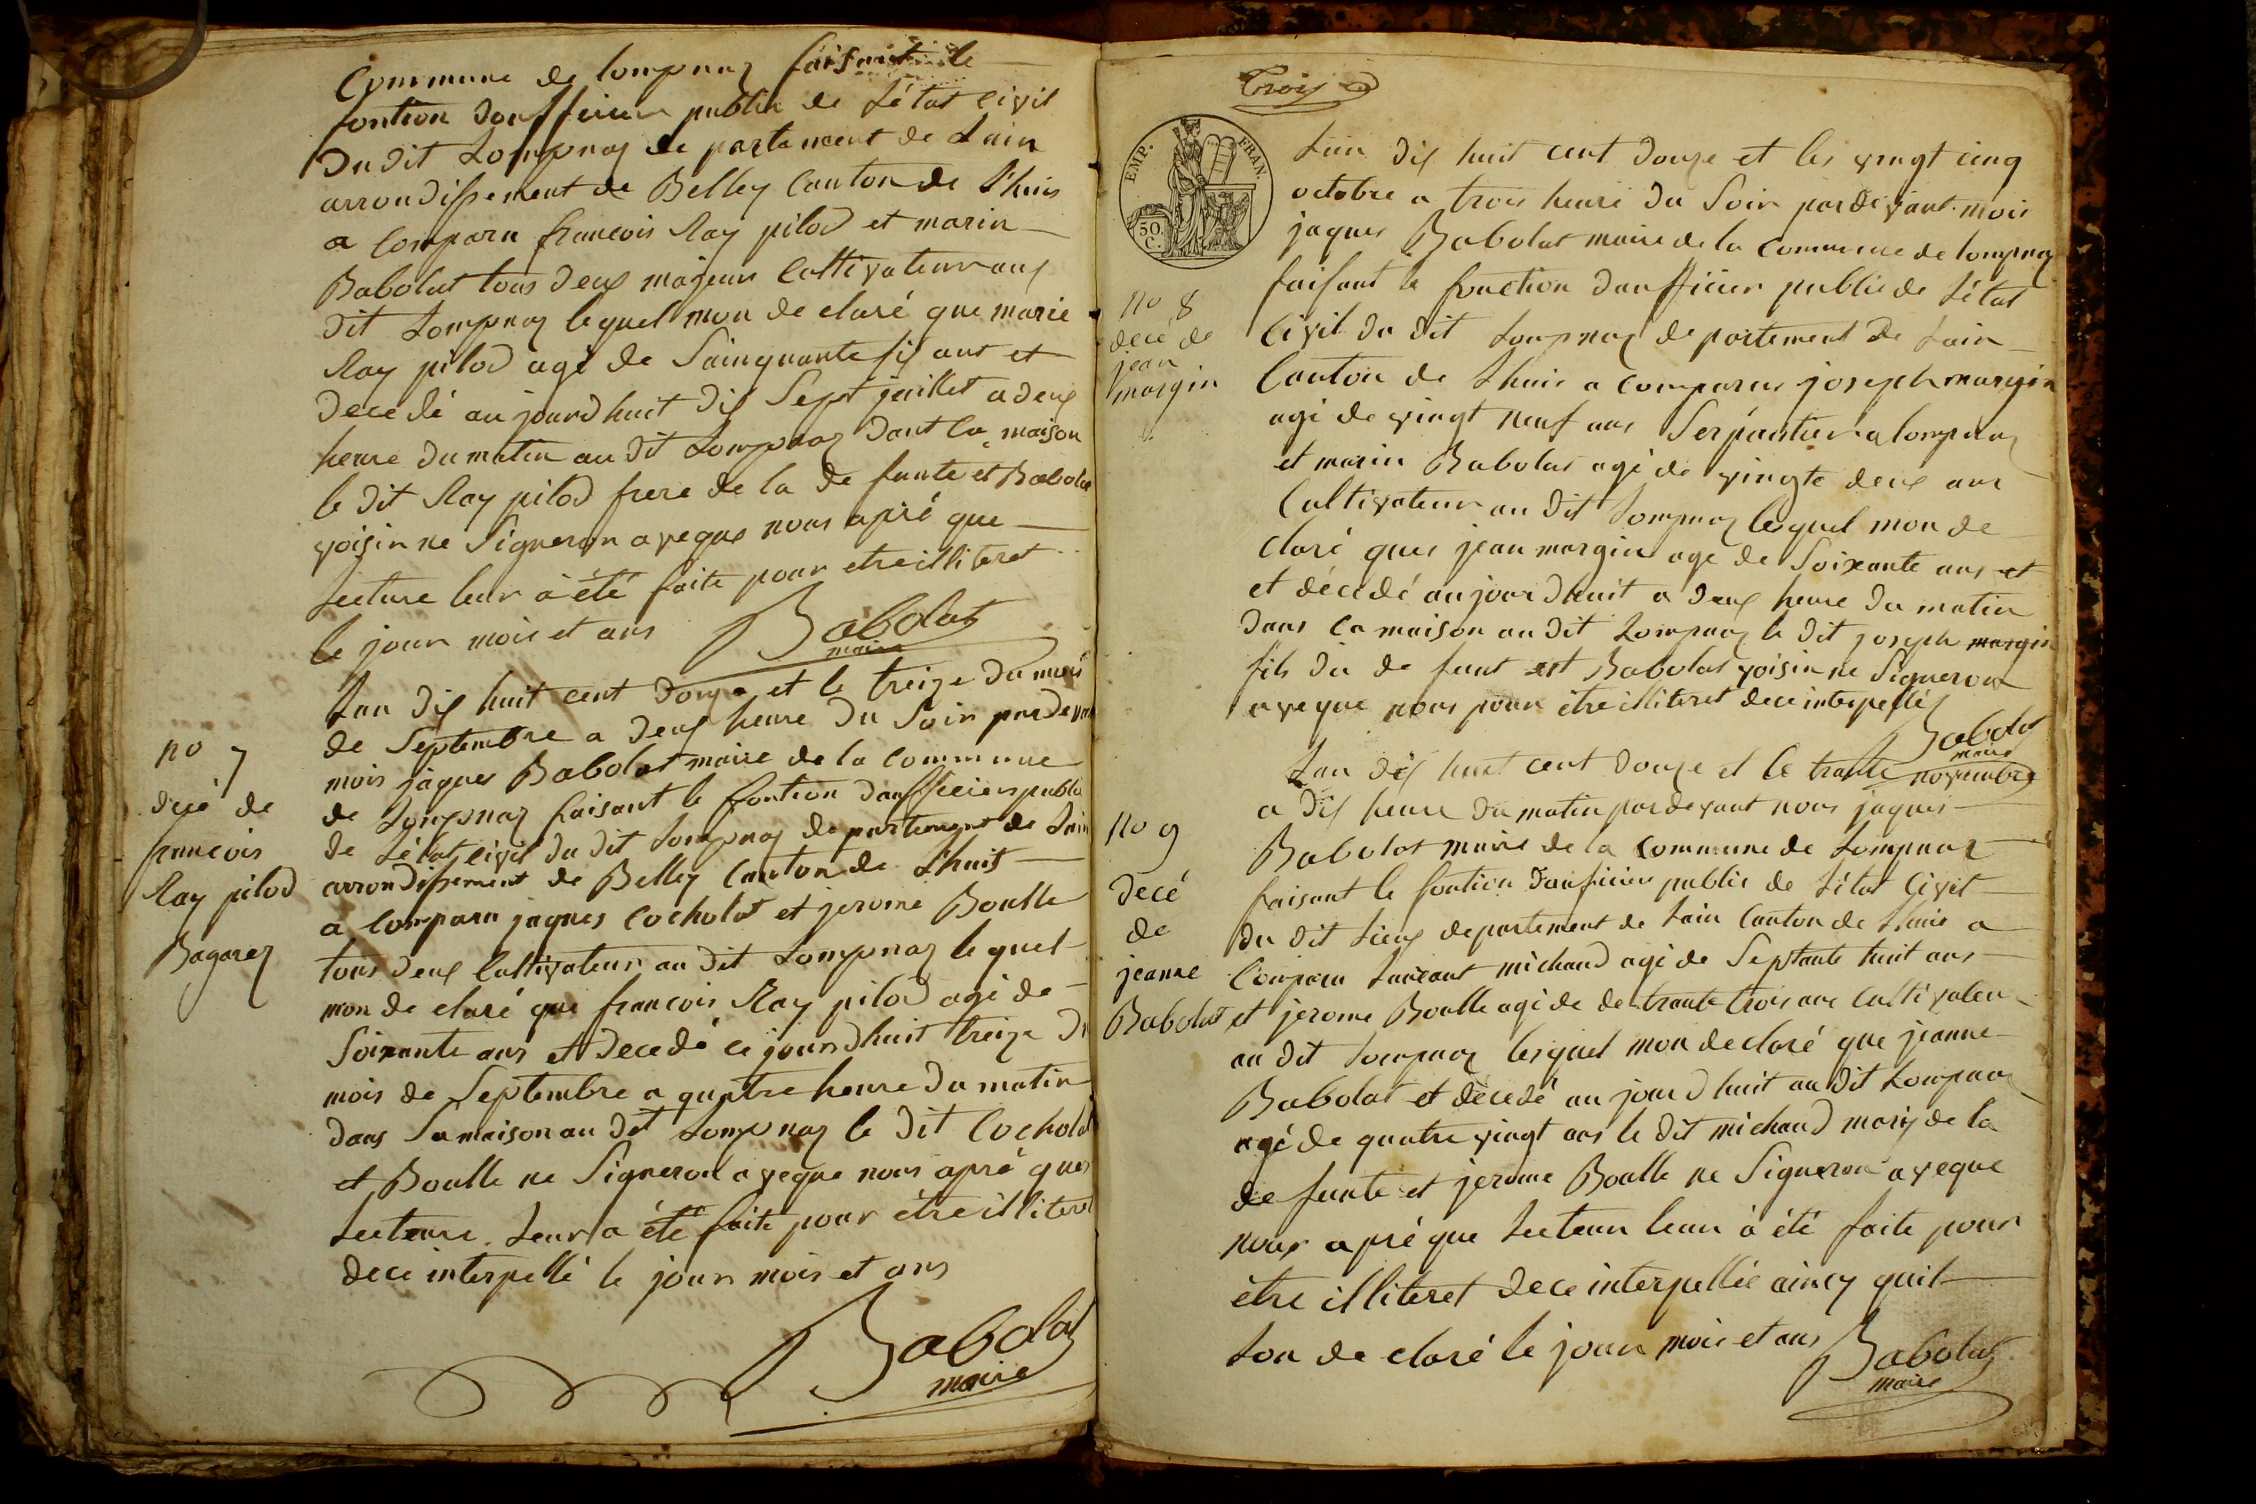 Commune de Lompnaz faisant le
fontion daufficier publia de Létat civil
du dit Lompnaz de partement de Lain
arrondissement de Belley Canton de Lhuis
a comparu francois Ray pilod et marin
Babolat tous deux majeur Cultivateur aux
dit Lompnaz lequel mon de claré que marie
Ray pilod agé de Sainquante six ans et
decedé au jourdhuit dix Sept juillet a deux
heure du matin au dit Lompnaz dant Ca maison
le dit Ray pilod frere de la de funte et Babolat
voisin ne Signeron aveque nous apré que
Lecture leur à été faite pour etre illiteret
le jour mois et ans Babolat
maire
no 7
decé de
francois
Ray pilod
Bagarez
Lan dix huit cent douze et le treize du mois
de Septembre a deux heure du Soir pardevant
mois jaques Babolat maire de la Commune
de Lompnaz faisant le fontion daufficier public
de Létat civil du dit Lompnaz de partement de Lain
arrondissement de Belley Canton de Lhuis
a comparu jaques Cocholat et jerome Boulle
tous deux Cultivateur au dit Lompnaz le quel
mon de claré que francois Ray pilod agé de
Soixante ans et decedé ce jourdhuit treize du
mois de Septembre a quatre heure du matin
dans Sa maison au dit Lompnaz le dit Cocholat
et Boulle ne Signeron aveque nous apré ques
Lecteure Leur a été faite pour étre illiteret
dece interpellé le jour mois et ans
Babolat
maire
Trois
EMP. FRAN.
50.
C.
no 8
decé de
jean
margin
Lan dix huit cent douze et les vingt cinq
octobre a trois heure du Soir pardevant mois
jaques Babolat maire de la Commune de lompnaz
faisant le fonction daufficier public de Létat
Civil du dit Lompnaz de partement de Lain
Canton de Lhuis a comparus joseph margin
agé de vingt neuf ans Serpantier a lompnaz
et marin Babolat agé de vingte deux ans
Cultivateur au dit Lompnaz lesquel mon de
claré ques jean margin agé de Soixante ans et
et décédé au jourdhuit a deux heure du matin
dans Ca maison au dit Lompnaz le dit joseph margin
fils du de funt est Babolat voisin ne Signeron
aveque nous pour étre illiteret dece interpellé
Babolat
maire
no 9
decé
de
jeanne
Babolat
Lan dix huit cent douze et le trante novembre
a dix heure du matin pardevant nous jaques
Babolat maire de la Commune de Lompnaz
faisant le fontion daufficier public de Létat Civil
du dit Lieux departement de Lain Canton de Lhuis a
Comparu Laureant michaud agé de Septante huit ans
et jerome Boulle agé de de trante trois ans Cultivateur
au dit Lompnaz lesquel mon declaré que jeanne
Babolat et décedé au jourdhuit au dit Lompnaz
agé de quatre vingt ans le dit michaud mary de la
de funte et jerome Boulle ne Signeron aveque
nous apré que Lecteur leur à été faite pour
etre illiteret dece interpellée aincy quil
Lon de claré le jour mois et ans Babolat
maire